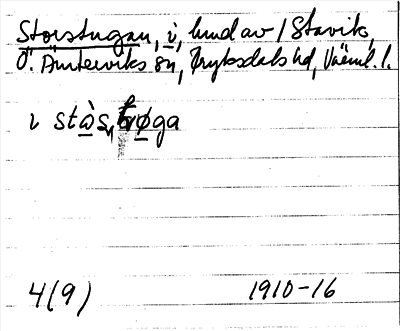 Storstugan, i, hmd av 1 Stavik,
Ö. Ämterviks sn, Fryksdals hd, Värml. l.
i stὰs, trøga
4(9) 1910-16